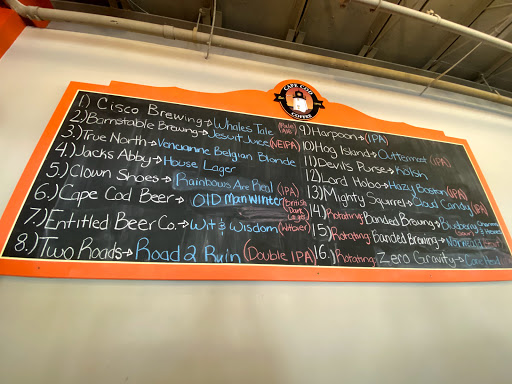 CAPE COD
COFFEE
1) Cisco Brewing→Whales Tale (Pale Ale)
2) Barnstable Brewing→Jesuit Juice (NEIPA)
3.) True North→ Belgian Blonde
4.) Jacks Abby→House Lager
5.) Clown Shoes→Rainbows Are Real (IPA)
6.) Cape Cod Beer→Old Man Winter
7.) Entitled Beer Co.→Wit & Wisdom (Witbier)
8.) Two Roads→Road 2 Ruin (Double IPA)
9) Harpoon→(IPA)
10) Hog Island→Outermost (IPA)
11) Devils Purse→Kolsh
12) Lord Hobo→Hazy Boston
13) Mighty Squirrel→Cloud Candy (IPA)
14) Rotating: Banded Brewing→Blueberry
15.) Rotating: Banded Brewing→
16.) Rotating: Zero Gravity→